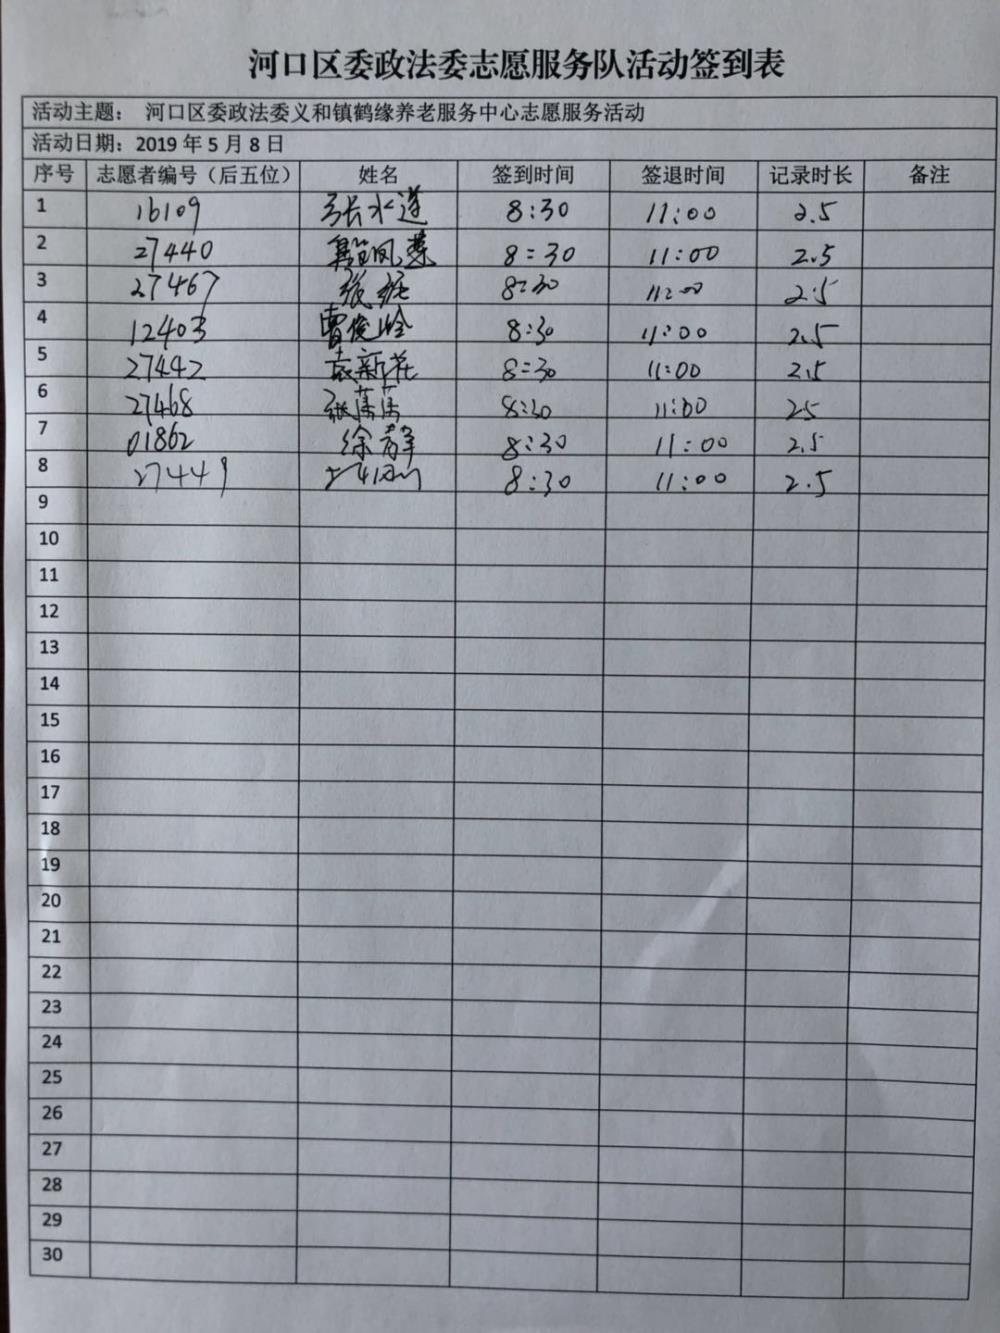 河口区委政法委志愿服务队活动签到表
活动主题： 河口区委政法委义和镇鹤缘养老服务中心志愿服务活动
活动日期：2019 年 5 月 8 日
序号 志愿者编号（后五位） 姓名 签到时间 签退时间 记录时长 备注
1 16109 张水莲 8:30 11:00 2.5
2 27440 凤莲 8:30 11:00 2.5
3 27467 张 8:30 11:00 2.5
4 12403 曹俊岭 8:30 11:00 2.5
5 27442 袁新花 8:30 11:00 2.5
6 27468 张 8:30 11:00 25
7 01862 徐静 8:30 11:00 2.5
8 27449 8:30 11:00 2.5
9
10
11
12
13
14
15
16
17
18
19
20
21
22
23
24
25
26
27
28
29
30